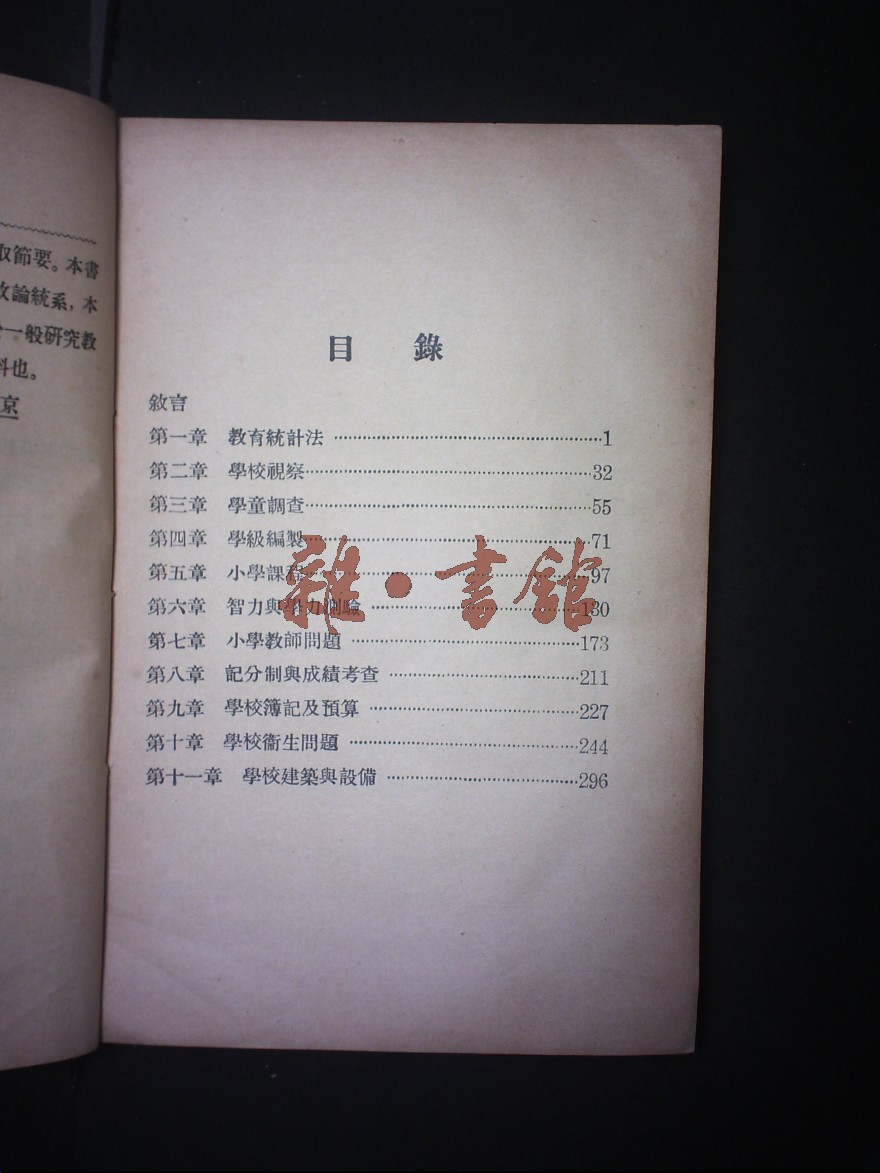 取節要。本書
論統系，本
一般研究教
料也。
京
目錄
敘言
第一章 教育統計法 ……………………………………1
第二章 學校視察……………………………………32
第三章 學童調查……………………………………55
第四章 學級編製……………………………………71
第五章 小學課程……………………………………97
第六章 智力與學力測驗 ……………………………130
第七章 小學教師問題 ………………………………173
第八章 記分制與成績考查 …………………………211
第九章 學校簿記及預算 ……………………………227
第十章 學校衞生問題 ………………………………244
第十一章 學校建築與設備 …………………………296
雜·書館